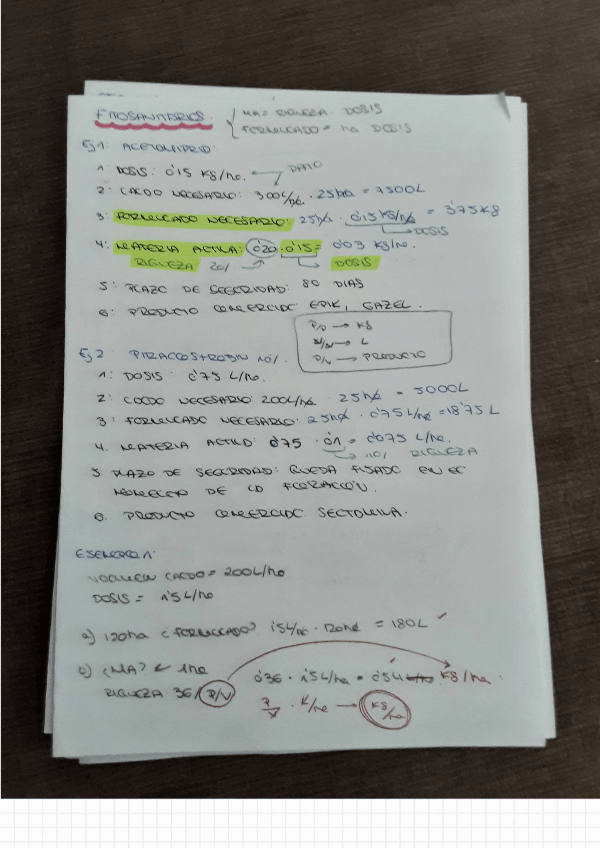 FITOSANITARIOS. { MA = RIQUEZA · DOSIS
FORMULADO = ha · DOSIS
Ej 1: ACETAMIPRID:
1. DOSIS: 0'15 Kg/ha. ← DATO
2: CALDO NECESARIO: 300L/ha · 25ha = 7500L
3: FORMULADO NECESARIO: 25ha · 0'15 Kg/ha = 3'75Kg
DOSIS
4: MATERIA ACTIVA: 0'20 · 0'15 = 0'03 Kg/ha.
RIQUEZA 20% DOSIS
5: PLAZO DE SEGURIDAD: 80 DIAS
6: PRODUCTO COMERCIAL: EPIK, GAZEL.
P/P → Kg
V/V → L
P/V → PRODUCTO
Ej 2: PIRACLOSTROBIN 10%.
1: DOSIS: 0'75 L/ha.
2: CALDO NECESARIO: 200L/ha · 25ha = 5000L
3: FORMULADO NECESARIO: 25ha · 0'75L/ha = 18'75 L
4. MATERIA ACTIVA: 0'75 · 0'1 = 0'075 L/ha.
10% RIQUEZA
5: PLAZO DE SEGURIDAD: QUEDA FIJADO EN EL
MOMENTO DE LA FLORACIÓN.
6. PRODUCTO COMERCIAL:
EJEMPLO 1:
VOLUMEN CALDO = 200L/ha
DOSIS = 1'5L/ha
a) 120ha ¿FORMULADO? 1'5L/ha · 120ha = 180L ✓
b) ¿MA? ← 1ha 0'36 · 1'5L/ha = 0'54 L/ha Kg/ha.
RIQUEZA 36% P/V P/V · V/ha → Kg/ha